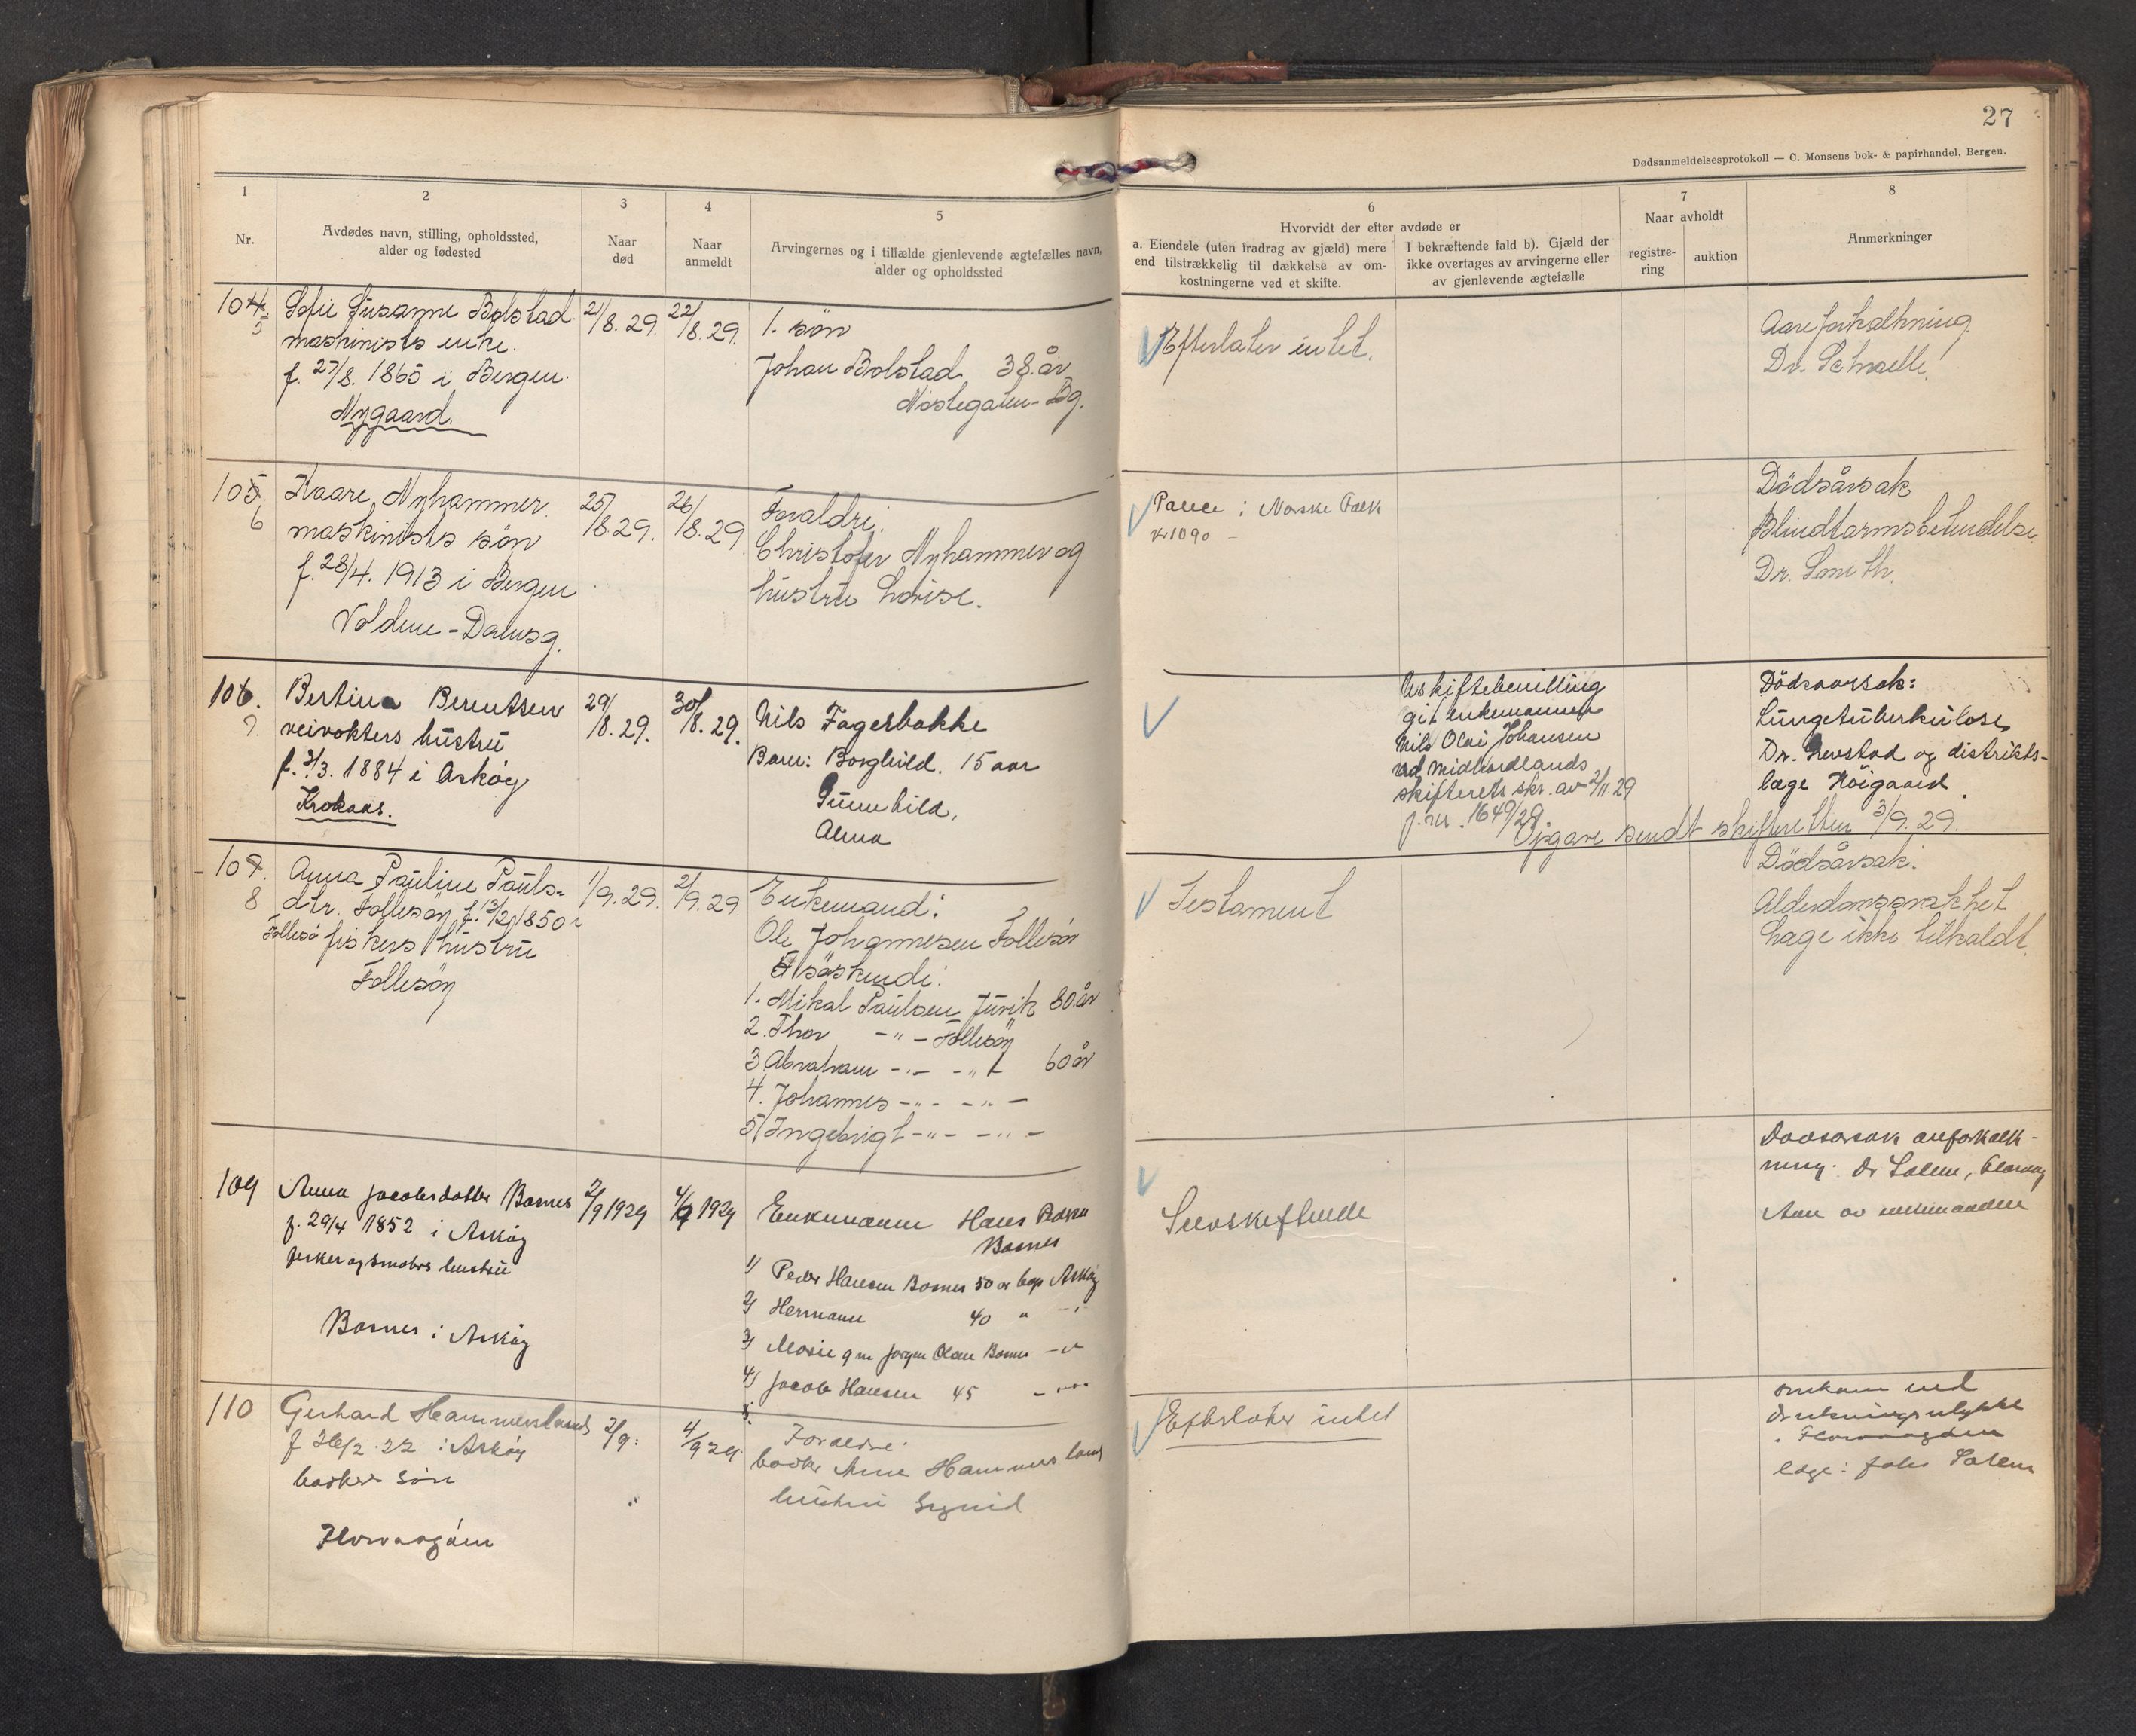 27
Dødsanmeldelsesprotokoll — C. Monsens bok- & papirhandel, Bergen.
1
Nr.
2
Avdødes navn, stilling, opholdssted,
alder og fødested
3
Naar
død
4
Naar
anmeldt
5
Arvingernes og i tilfælde gjenlevende ægtefælles navn,
alder og opholdssted
6
Hvorvidt der efter avdøde er
a. Eiendele (uten fradrag av gjæld) mere
end tilstrækkelig til dækkelse av om-
kostningerne ved et skifte.
I bekræftende fald b). Gjæld der
ikke overtages av arvingerne eller
av gjenlevende ægtefælle
7
Naar avholdt
registre-
ring
auktion
8
Anmerkninger
104.
5
Sofie Susanne Bolstad
maskinists enke.
f. 27/8. 1865 i Bergen.
Nygaard.
21/8. 29.
22/8. 29.
1. søn
Johan Bolstad 38 år
Nøstegaten - Bg.
Efterlater intet.
Aareforkalkning
Dr.
105.
6
Kaare Nyhammer.
maskinists søn
f. 28/4. 1913 i Bergen
Voldene - Damsg.
25/8.29.
26/8.29
Foraldre:
Christofer Nyhammer og
hustru Lovise.
i Norske Folk
kr 1090 -
Dödsårsak
Blindtarmsbetendelse
Dr. Smith.
106.
7.
Bertina Berentsen
veivokters hustru
f. 3/3. 1884 i Askøy
Krokaas.
29/8.29.
30/8.29.
Nils Fagerbakke
Barn: Borghild. 15 aar
Gunnhild,
Alma
Uskiftebevilling
git enkemannen
Nils Olai Johansen
ved Midhordlands
skifterets skr. av 2/11.29
j. nr. 1649/29.
Opgave sendt skifteretten 3/9.29.
Dödsaarsak:
Lungetuberkulose
Dr. Grevstad og distrikts-
læge Höigaard.
107.
8
Anna Pauline Pauls-
dtr. Follesøy f. 13/2 1850 i
Follesø fiskers hustru
Follesøy
1/9.29.
2/9.29
Enkemand:
Ole Johannesen Follesøy
5 søskende:
1. Mikal Paulsen Juvik 80 år
2. Thor -"- Follesøy
3 Abraham -"- -"- 60 år
4. Johannes -"- -"-
5) Ingebrigt -"- -"-
Testament
Dödsårsak:
Alderdomssvakhet
Læge ikke tilkaldt.
109
Anna Jacobsdatter Bornes
f. 29/4 1852 i Askøy
fisker og småbrs hustru
Bornes i Askøy
2/9 1929
4/9 1929
Enkemann Hans
Bornes
1) Peder Hansen Bornes 50 år bop Askøy
2) Hermann 40 "
3) Marie g m Jørgen Olsen Bornes -"-
4) Jacob Hansen 45 -"-
Selvskiftende
Dødsårsak åreforkalk-
ning. Dr Salem, Florvåg
Anm av enkemanden
110
Gerhard Hammersland
f 22 i Askøy
bøkker søn
Florvaagøen
2/9:
4/9 29
Foreldre:
bøkker Arne Hammersland
hustru
Efterlater intet
omkom ved
drukningsulykke
i Florvaagøen
læge: Salem